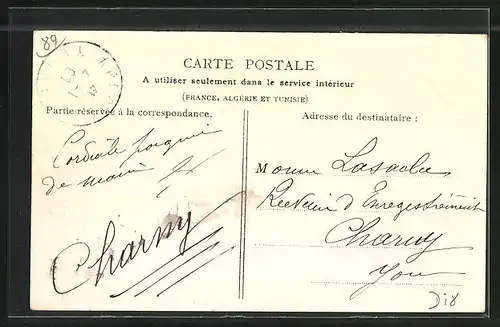 89
CARTE POSTALE
A utiliser seulement dans le service intérieur
(FRANCE, ALGÉRIE ET TUNISIE)
Partie réservée à la correspondance.
Adresse du destinataire :
Cordiale poignée
de main
Charny
M
Receveur d'Enregistrement
Charny
Yonne
D18